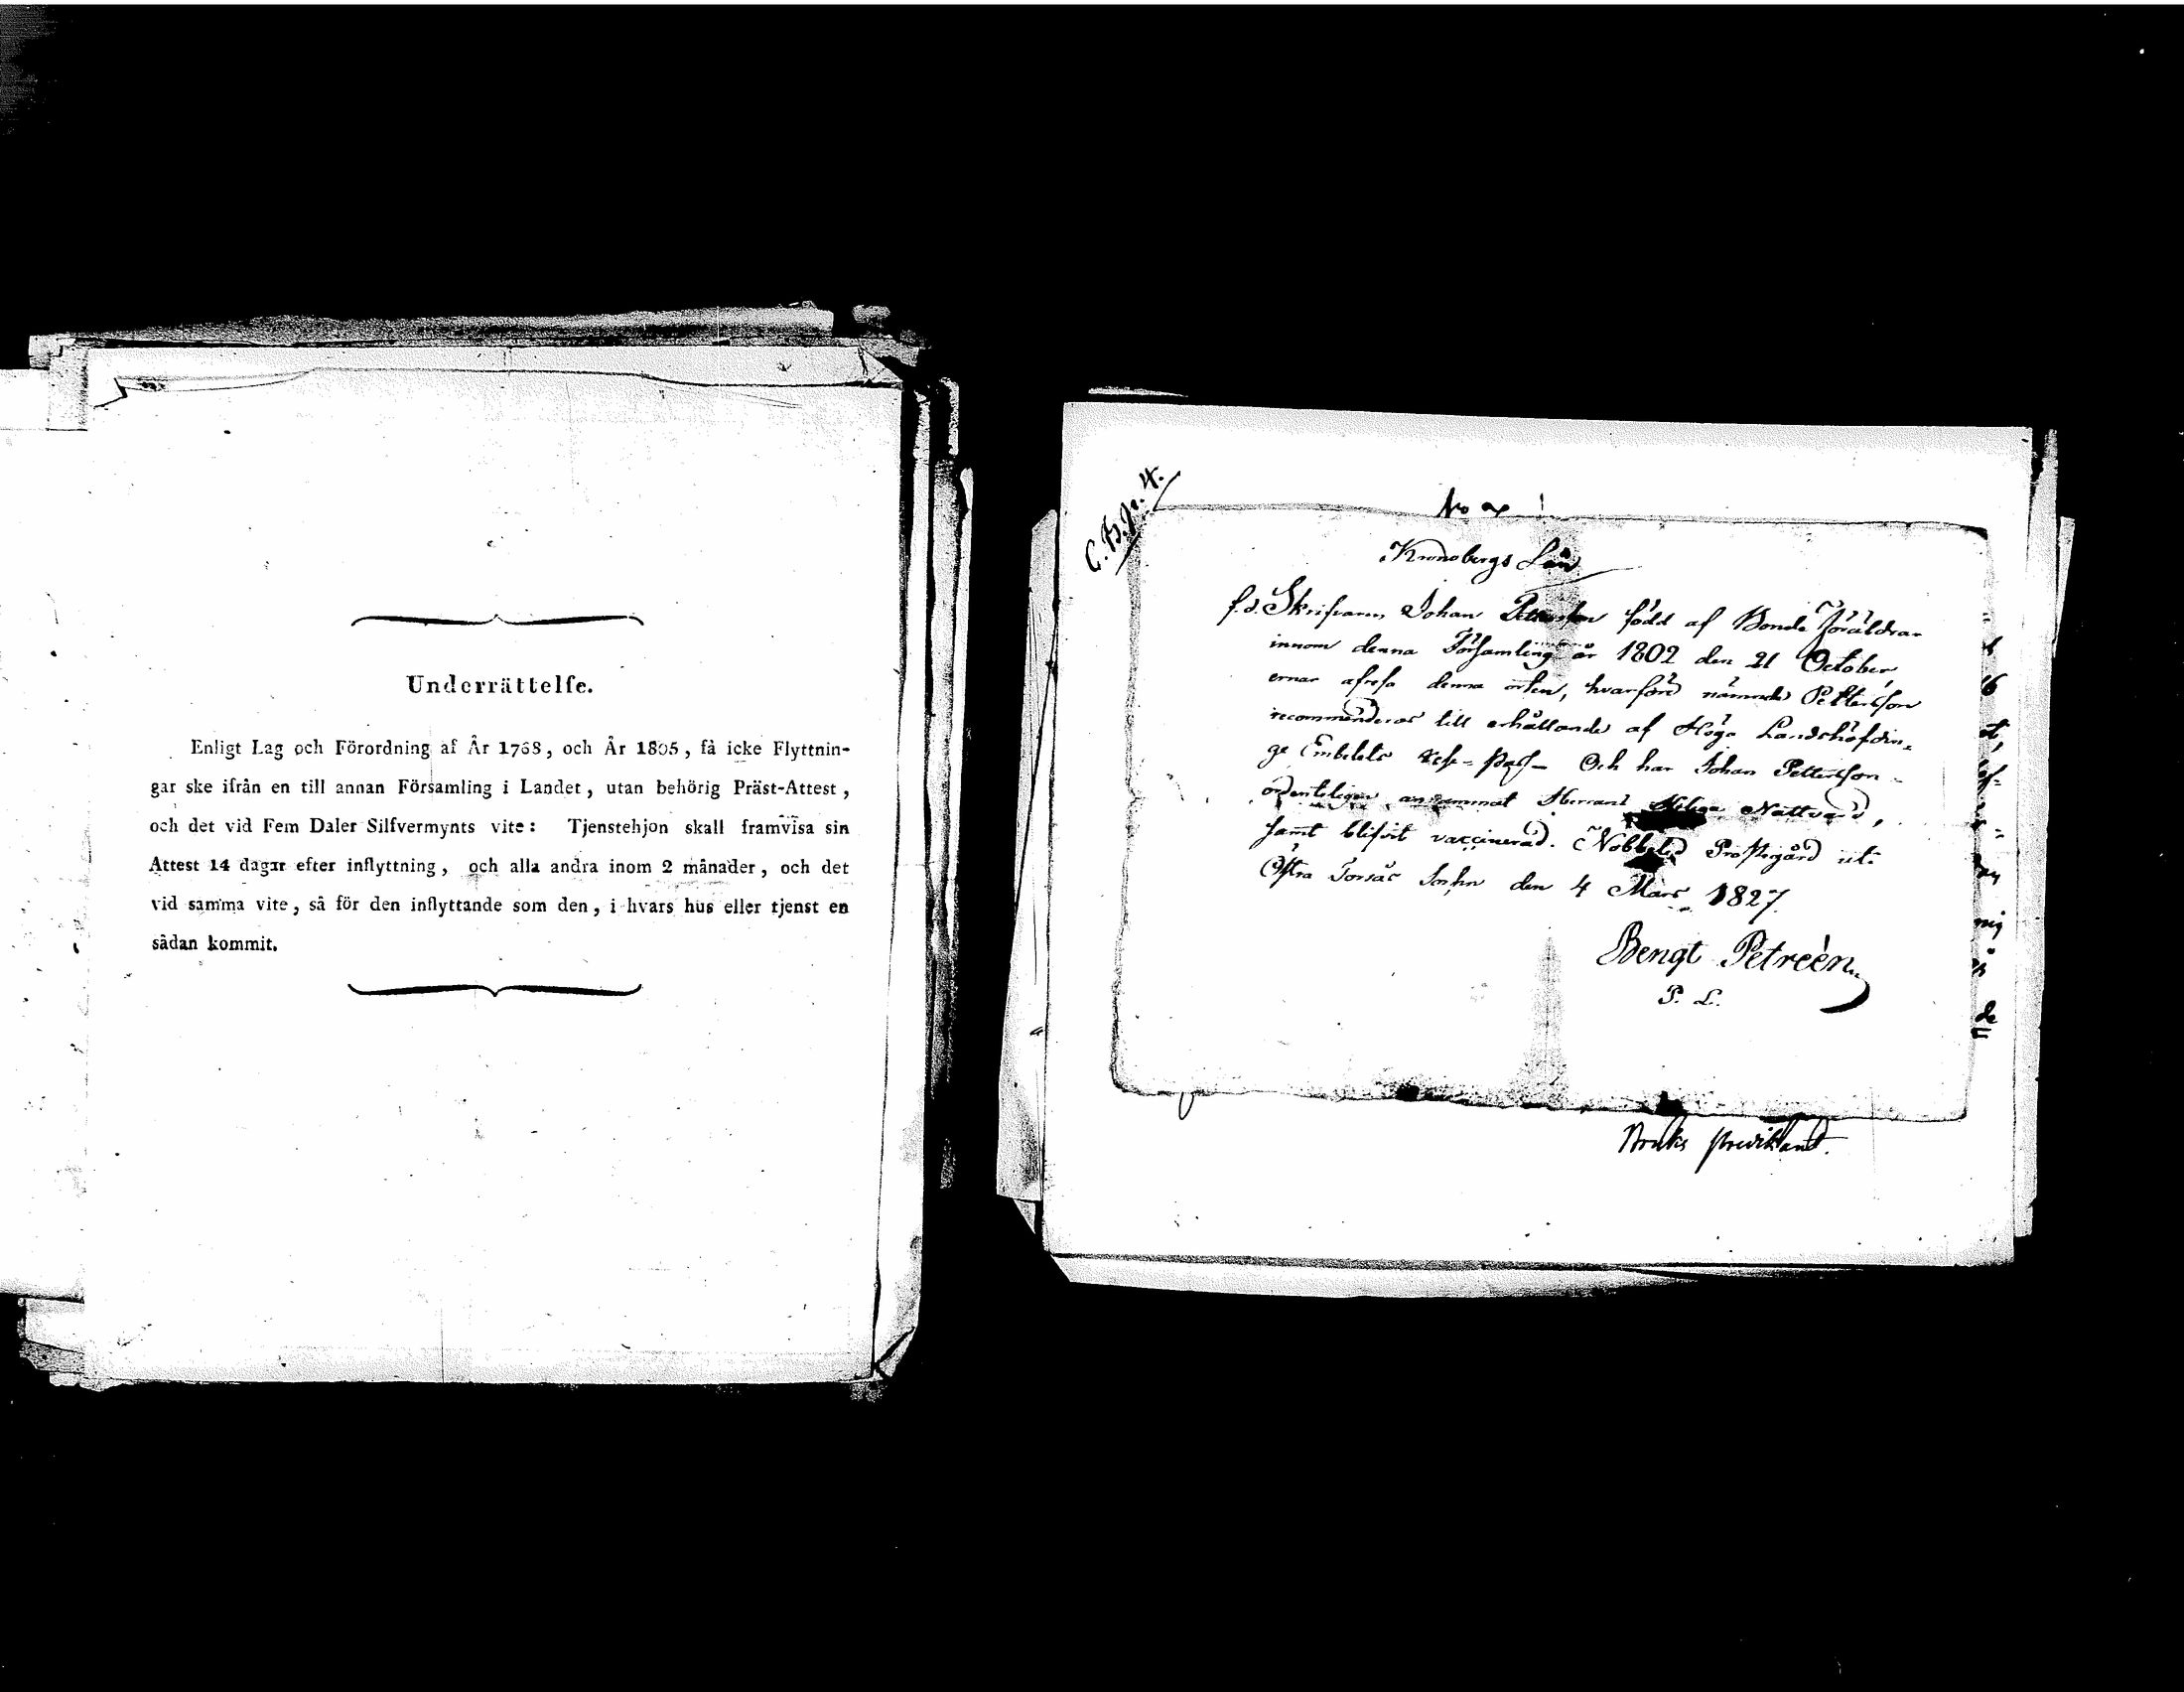 Underrättelse.
Enligt Lag och Förordning af År 1768, och År 1805, få icke Flyttnin-
gar ske ifrån en till annan Församling i Landet, utan behörig Präst-Attest,
och det vid Fem Daler Silfvermynts vite: Tjenstehjon skall framvisa sin
Attest 14 dagar efter inflyttning, och alla andra inom 2 månader, och det
vid samma vite, så för den inflyttande som den, i hvars hus eller tjenst en
sådan kommit.
Kronobergs Län
f.d. Skrifvaren Johan Pettersson född af Bonde Föräldrar
innom denna Församling år 1802 den 21 October,
ernar afresa denna orten, hvarföre nämnde Pettersson
recommenderas till erhållande af Höga Landshöfdin=
ge Embetets rese-pass- Och har Johan Pettersson
ordenteligen annammat Herrans Heliga Nattvard,
samt blifvit vaccinerad. Nöbbeled Prostegård uti
Östra Torsås Sochn den 4 Mars 1827.
Bengt Petreén
P. L.
Bruks predikant.